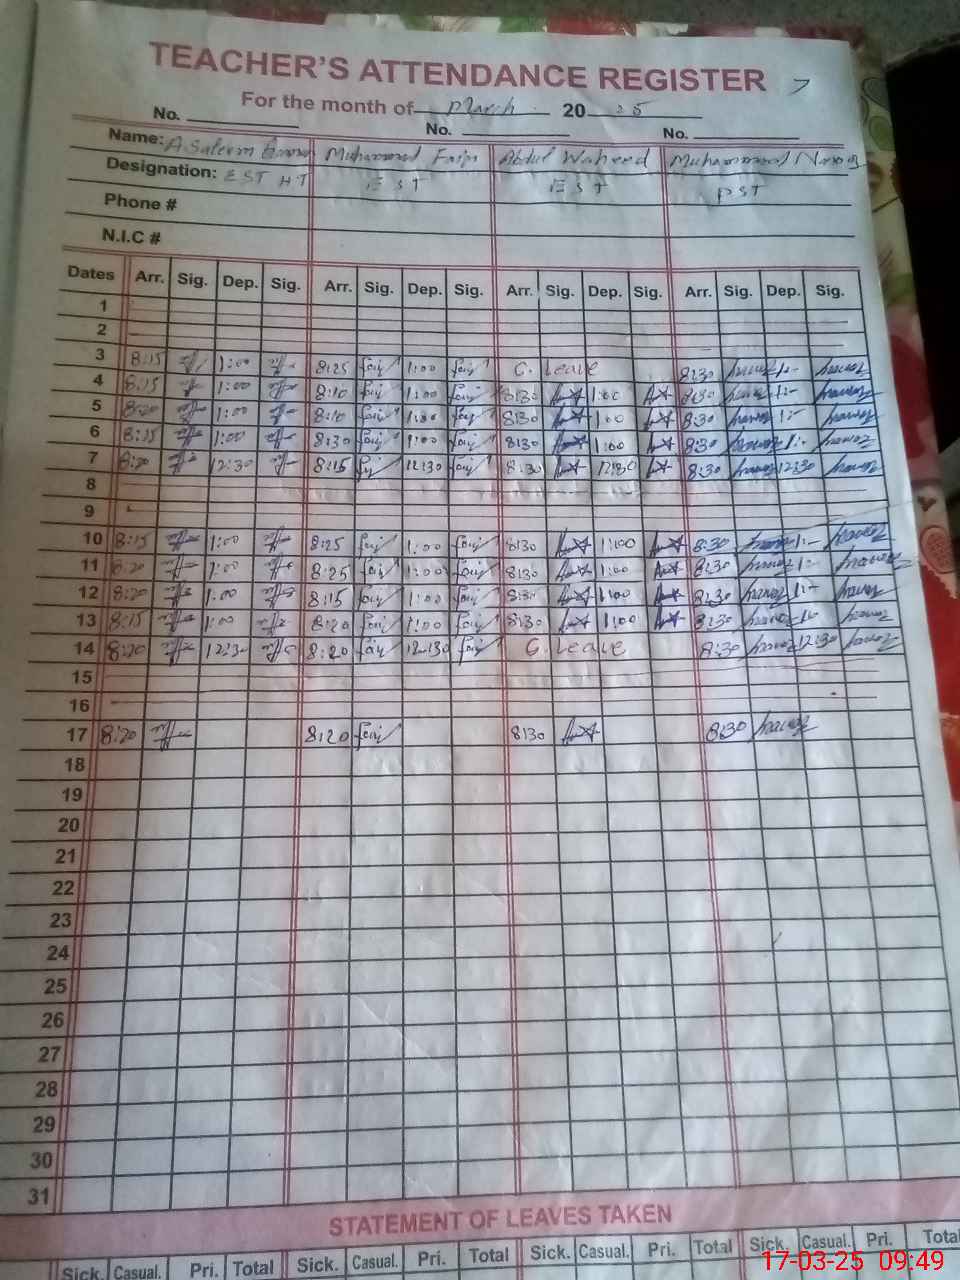 TEACHER'S ATTENDANCE REGISTER 7
For the month of March 2025
No. No. No.
Name: A Saleem Muhammad Faiz Abdul Waheed Muhammad
Designation: EST HT EST EST PST
Phone #
N.I.C #
Dates Arr. Sig. Dep. Sig. Arr. Sig. Dep. Sig. Arr. Sig. Dep. Sig. Arr. Sig. Dep. Sig.
1
2
3 8:15 1:00 8:25 faiz 1:00 faiz C. Leave 8:30
4 8:15 1:00 8:10 faiz 1:00 faiz 8:30 1:00 8:30
5 8:20 1:00 8:10 faiz 1:00 faiz 8:30 1:00 8:30
6 8:15 1:00 8:30 faiz 1:00 faiz 8:30 1:00 8:30
7 8:20 12:30 8:15 faiz 12:30 faiz 8:30 12:30 8:30 12:30
8
9
10 8:15 1:00 8:25 faiz 1:00 faiz 8:30 1:00 8:30
11 8:20 1:00 8:25 faiz 1:00 faiz 8:30 1:00 8:30
12 8:20 1:00 8:15 faiz 1:00 faiz 8:30 1:00 8:30
13 8:15 1:00 8:20 faiz 1:00 faiz 8:30 1:00 8:30
14 8:20 12:30 8:20 faiz 12:30 faiz C. Leave 8:30 12:30
15
16
17 8:20 8:20 faiz 8:30 8:30
18
19
20
21
22
23
24
25
26
27
28
29
30
31
STATEMENT OF LEAVES TAKEN
Sick. Casual. Pri. Total Sick. Casual. Pri. Total Sick. Casual. Pri. Total Sick. Casual. Pri. Total
17-03-25 09:49